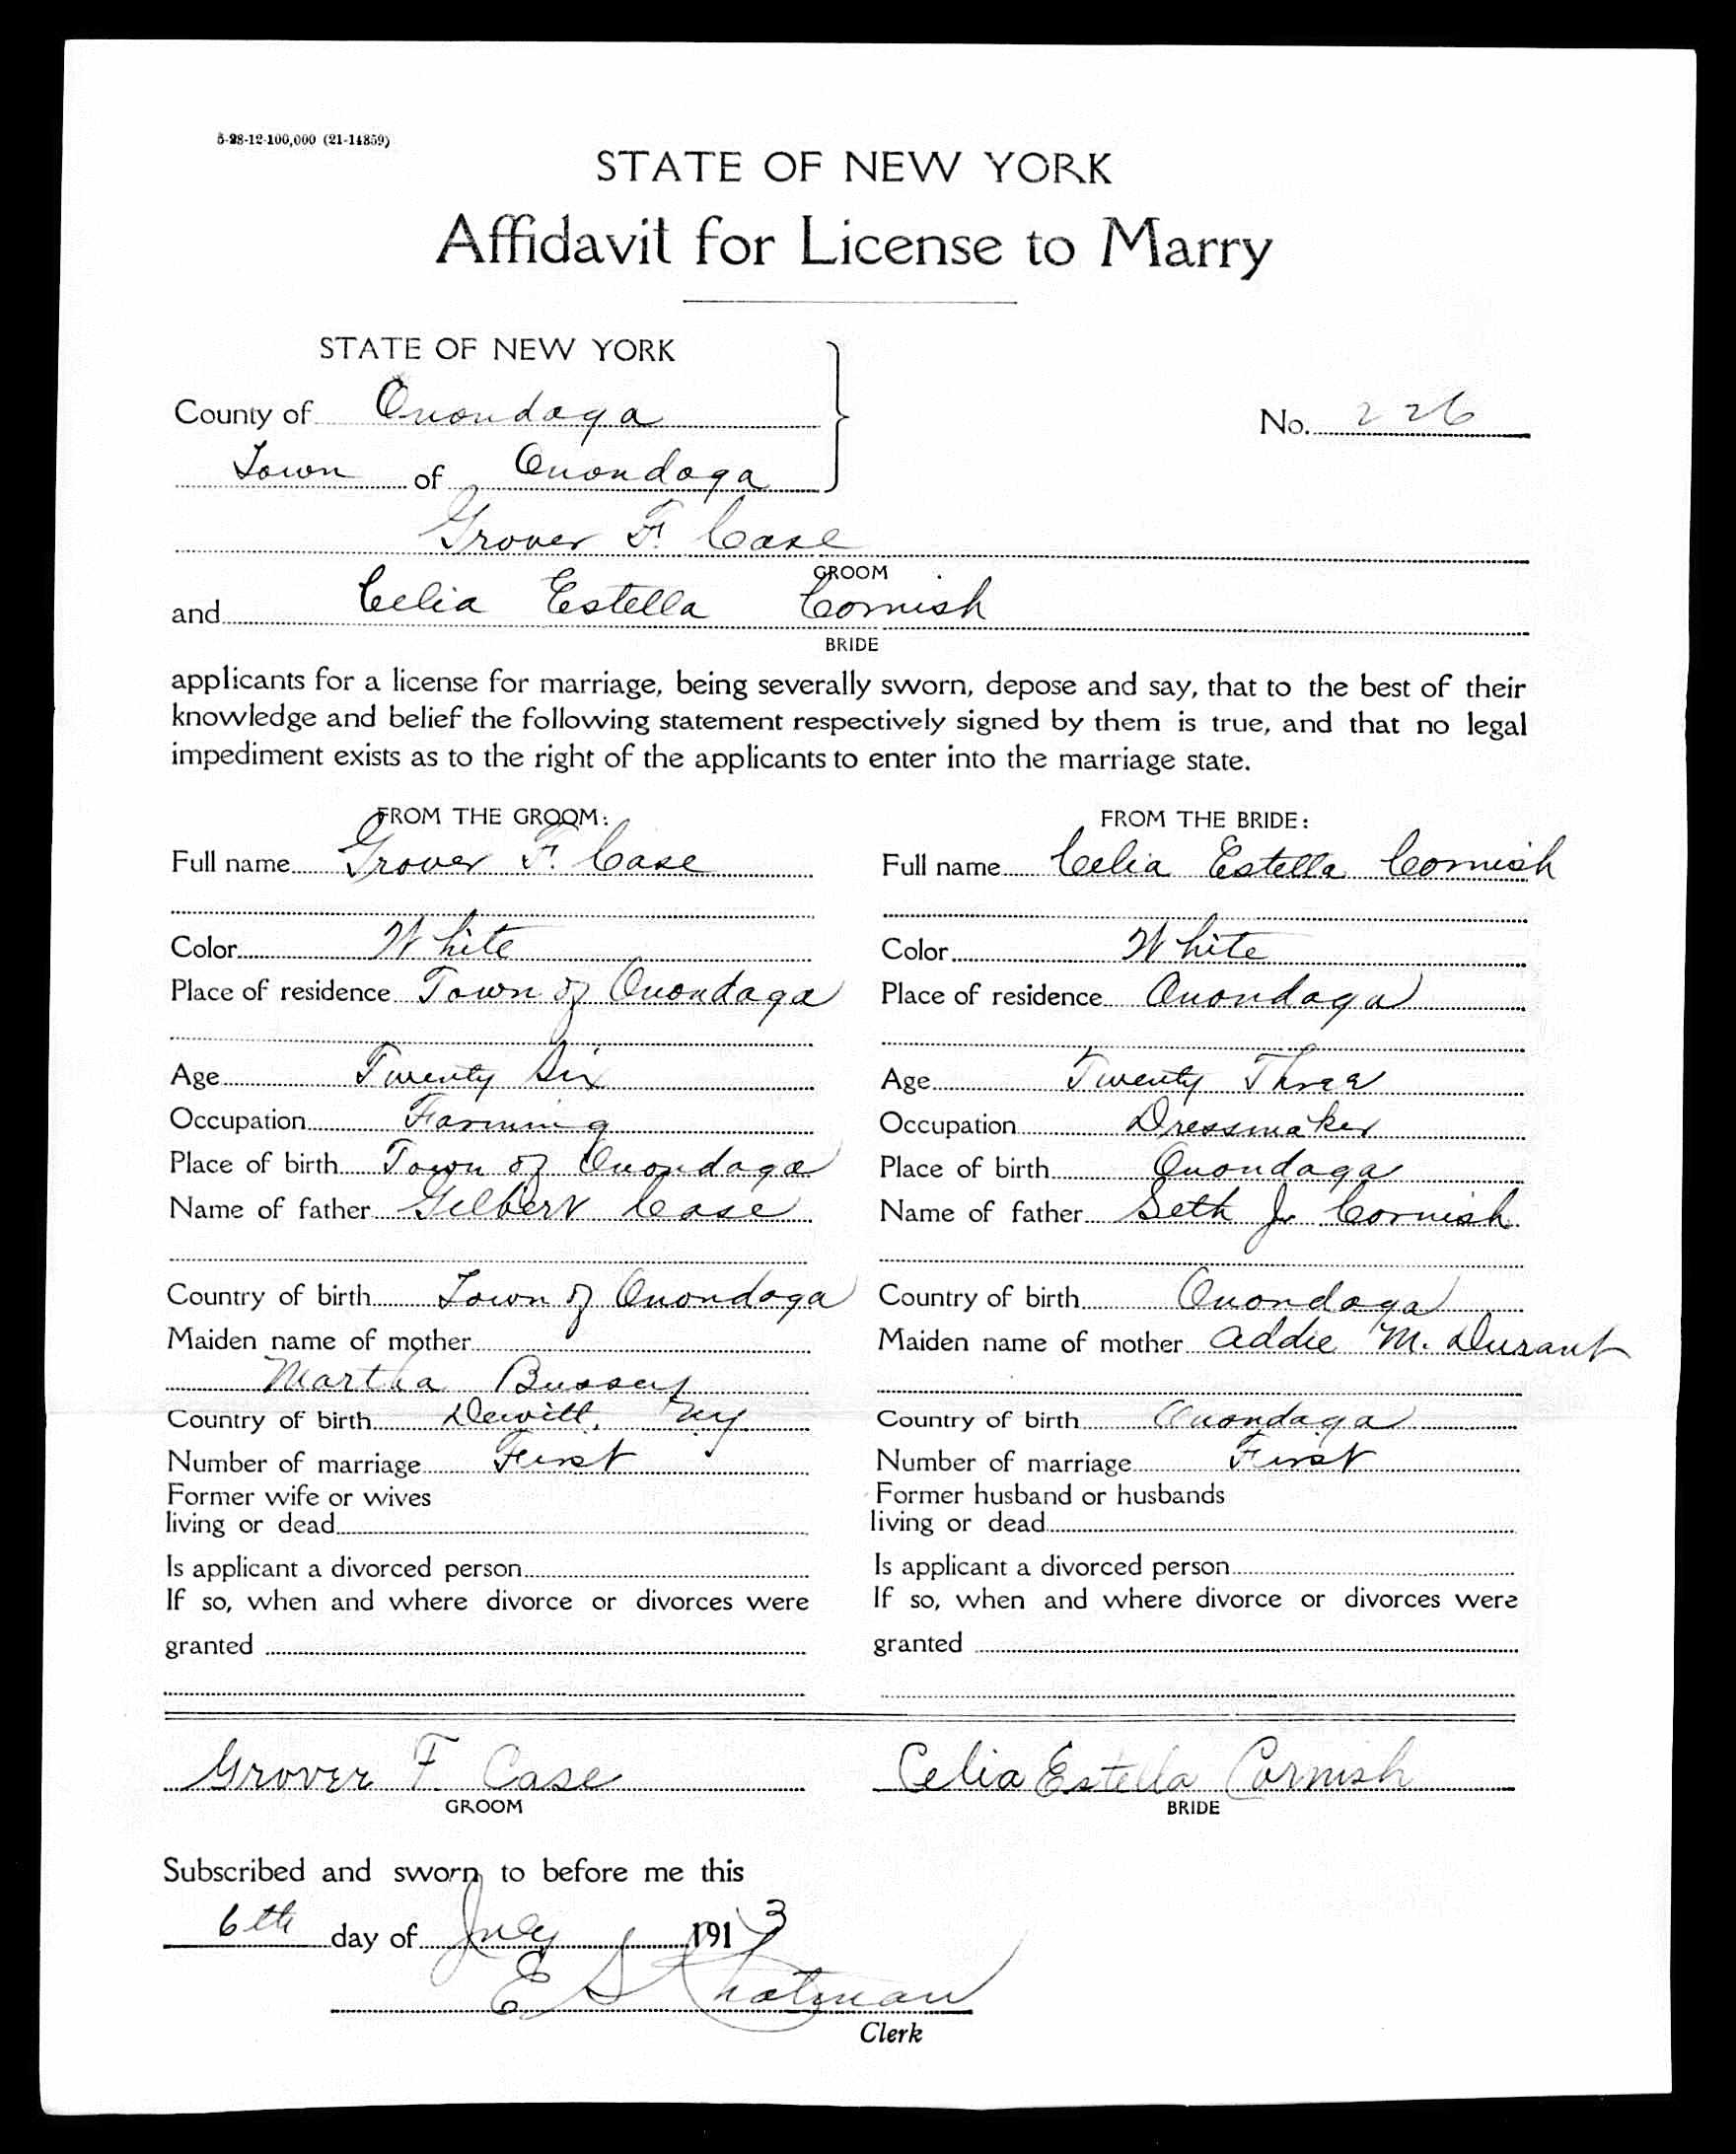 5-28-12-100,000 (21-14859)
STATE OF NEW YORK
Affidavit for License to Marry
STATE OF NEW YORK
County of Onondaga
No. 226
Town of Onondaga
Grover F. Case
GROOM
and Celia Estella Cornish
BRIDE
applicants for a license for marriage, being severally sworn, depose and say, that to the best of their
knowledge and belief the following statement respectively signed by them is true, and that no legal
impediment exists as to the right of the applicants to enter into the marriage state.
FROM THE GROOM:
Full name Grover F. Case
Color White
Place of residence Town of Onondaga
Age Twenty Six
Occupation Farming
Place of birth Town of Onondaga
Name of father Gilbert Case
Country of birth Town of Onondaga
Maiden name of mother
Martha Bussey
Country of birth Dewitt, NY
Number of marriage First
Former wife or wives
living or dead
Is applicant a divorced person
If so, when and where divorce or divorces were
granted
FROM THE BRIDE:
Full name Celia Estella Cornish
Color White
Place of residence Onondaga
Age Twenty Three
Occupation Dressmaker
Place of birth Onondaga
Name of father Seth J. Cornish
Country of birth Onondaga
Maiden name of mother Addie M. Durant
Country of birth Onondaga
Number of marriage First
Former husband or husbands
living or dead
Is applicant a divorced person
If so, when and where divorce or divorces were
granted
Grover F. Case
GROOM
Celia Estella Cornish
BRIDE
Subscribed and sworn to before me this
6th day of July 1913
E S
Clerk